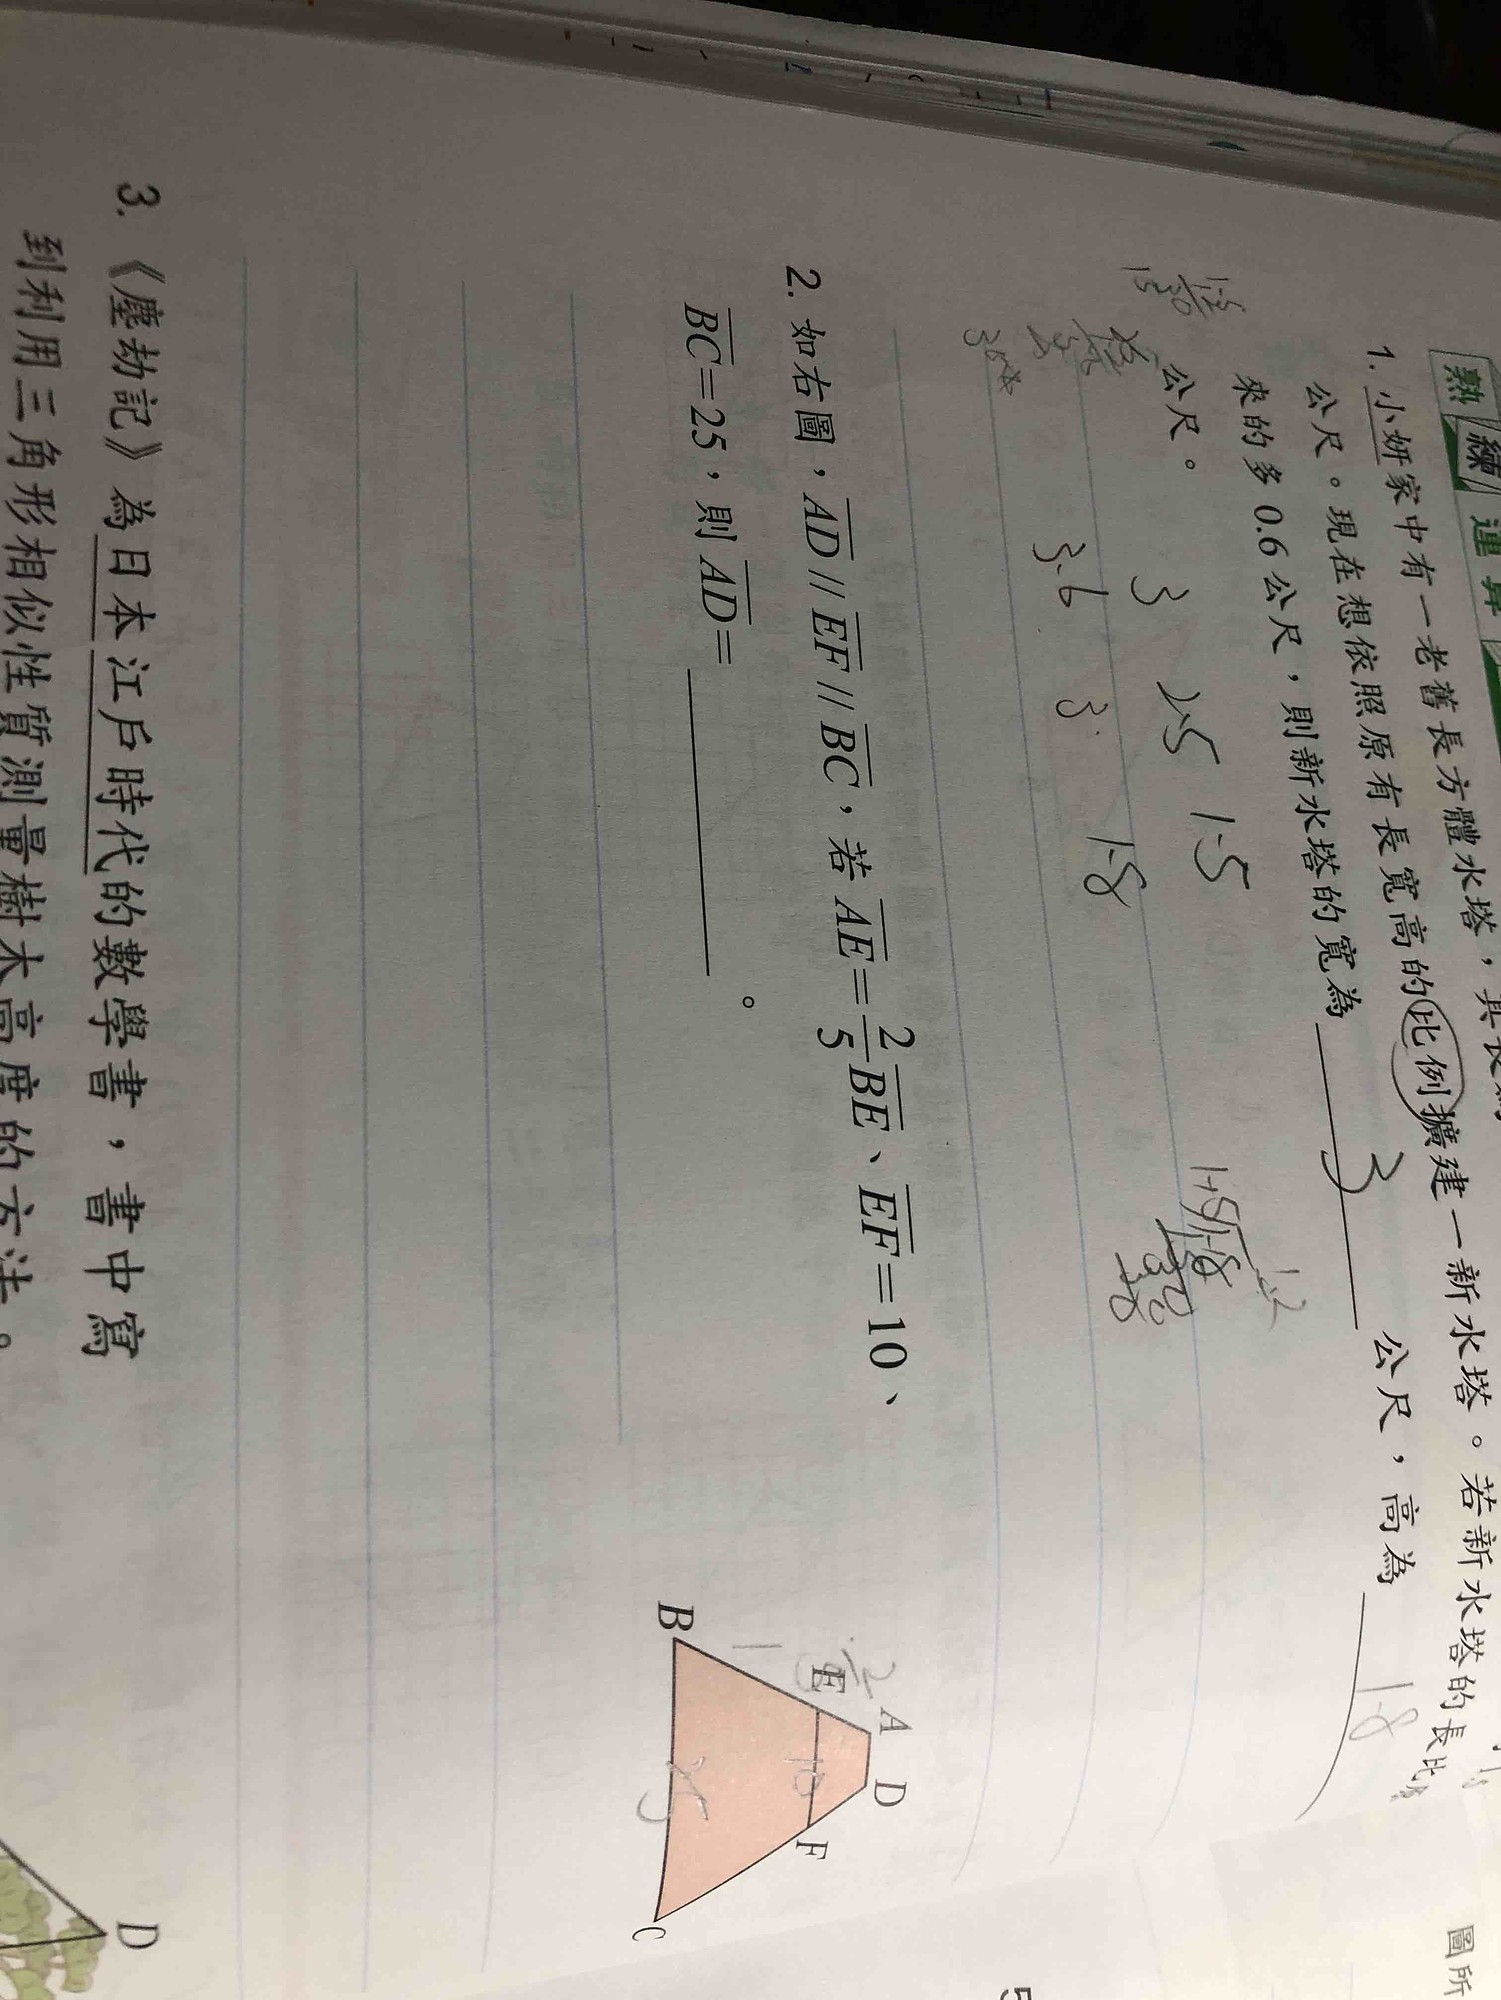 熟練運算
1. 小妍家中有一老舊長方體水塔，其長為
公尺。現在想依照原有長寬高的比例擴建一新水塔。若新水塔的長比原
來的多0.6公尺，則新水塔的寬為 3 公尺，高為 1.8
公尺。
3 2.5 1.5
3.6 3 1.8
2. 如右圖，AD // EF // BC，若 AE = 2/5 BE、EF = 10、
BC = 25，則 AD = ＿＿＿。
A D
E F
10
B C
3.《塵劫記》為日本江戶時代的數學書，書中寫
到利用三角形相似性質測量樹木高度的方法。
D
圖所